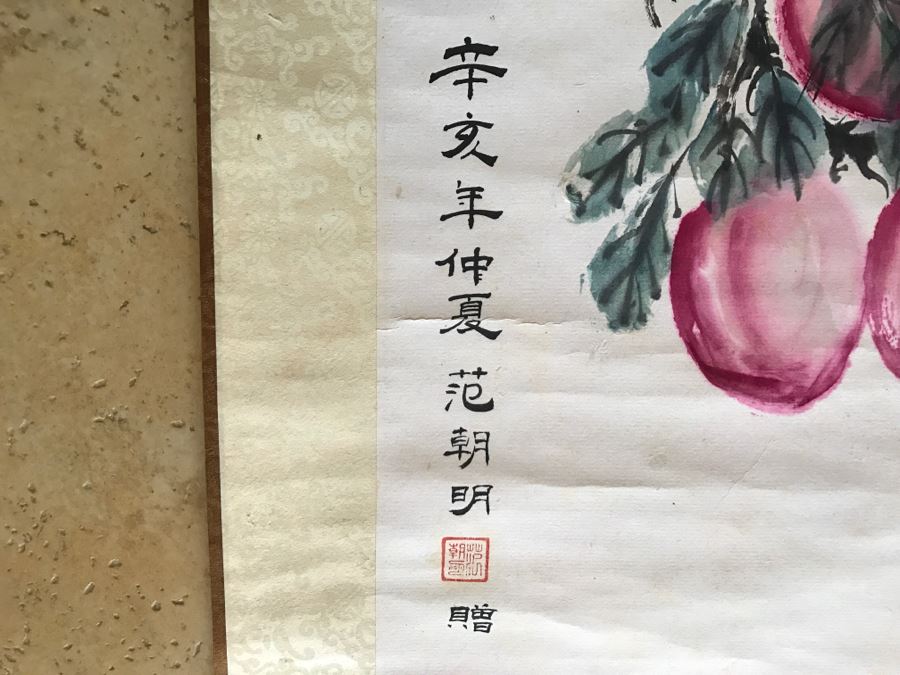 辛亥年仲夏 范朝明
范朝明
贈